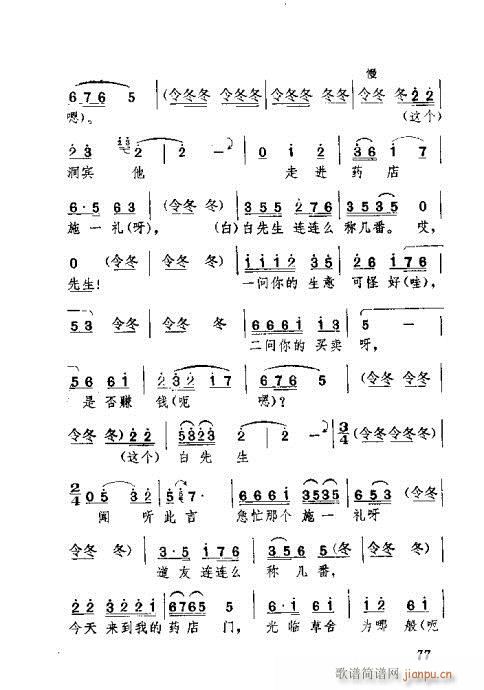 慢
6 7 6 5 | (令冬冬 令冬冬 | 令冬冬 冬冬 | 令冬 冬) 2 2 |
嗯)。 (这个)
2 3 2 | 2 - | 0 i 2 | 3 6 i 7 |
洞宾 他 走进 药店
6·5 6 3 | (令冬 冬) | 3 5 5 2 7 6 | 3 5 3 5 0 |
施一礼(呀), (白)白先生 连连么 称几番。 哎,
0 (令冬 | 令冬 冬) | i i i 2 3 5 | i 2 7 6 |
先生! 一问你的 生意 可怪好(哇),
5 3 令冬 | 令冬 冬 | 6 6 6 6 i 3 | 5 - |
二问你的 买卖 呀,
5 6 6 i | 2 3 2 i 7 | 6 7 6 5 | (令冬 令冬 |
是否赚 钱(呃 嗯)?
令冬 冬) 2 2 | 5 3 2 3 | 2 - | 2 - | 3/4 (令冬令冬冬) |
(这个) 白先 生
2/4 0 5 3 2 | 5 7· | 6 6 6 i 3 5 3 5 | 6 5 3 (令冬 |
闻 听此 言 急忙那个 施一 礼呀
令冬 冬) | 3·5 i 7 6 | 3 5 6 5 (冬 | 令冬 冬) |
道友连连么 称几番,
2 2 3 2 2 i | 6 7 6 5 5 | 6· i 6 5 | 3 5 2 |
今天 来到我的 药店 门, 光临草舍 为哪 般(呃
77
歌谱简谱网
jianpu.cn